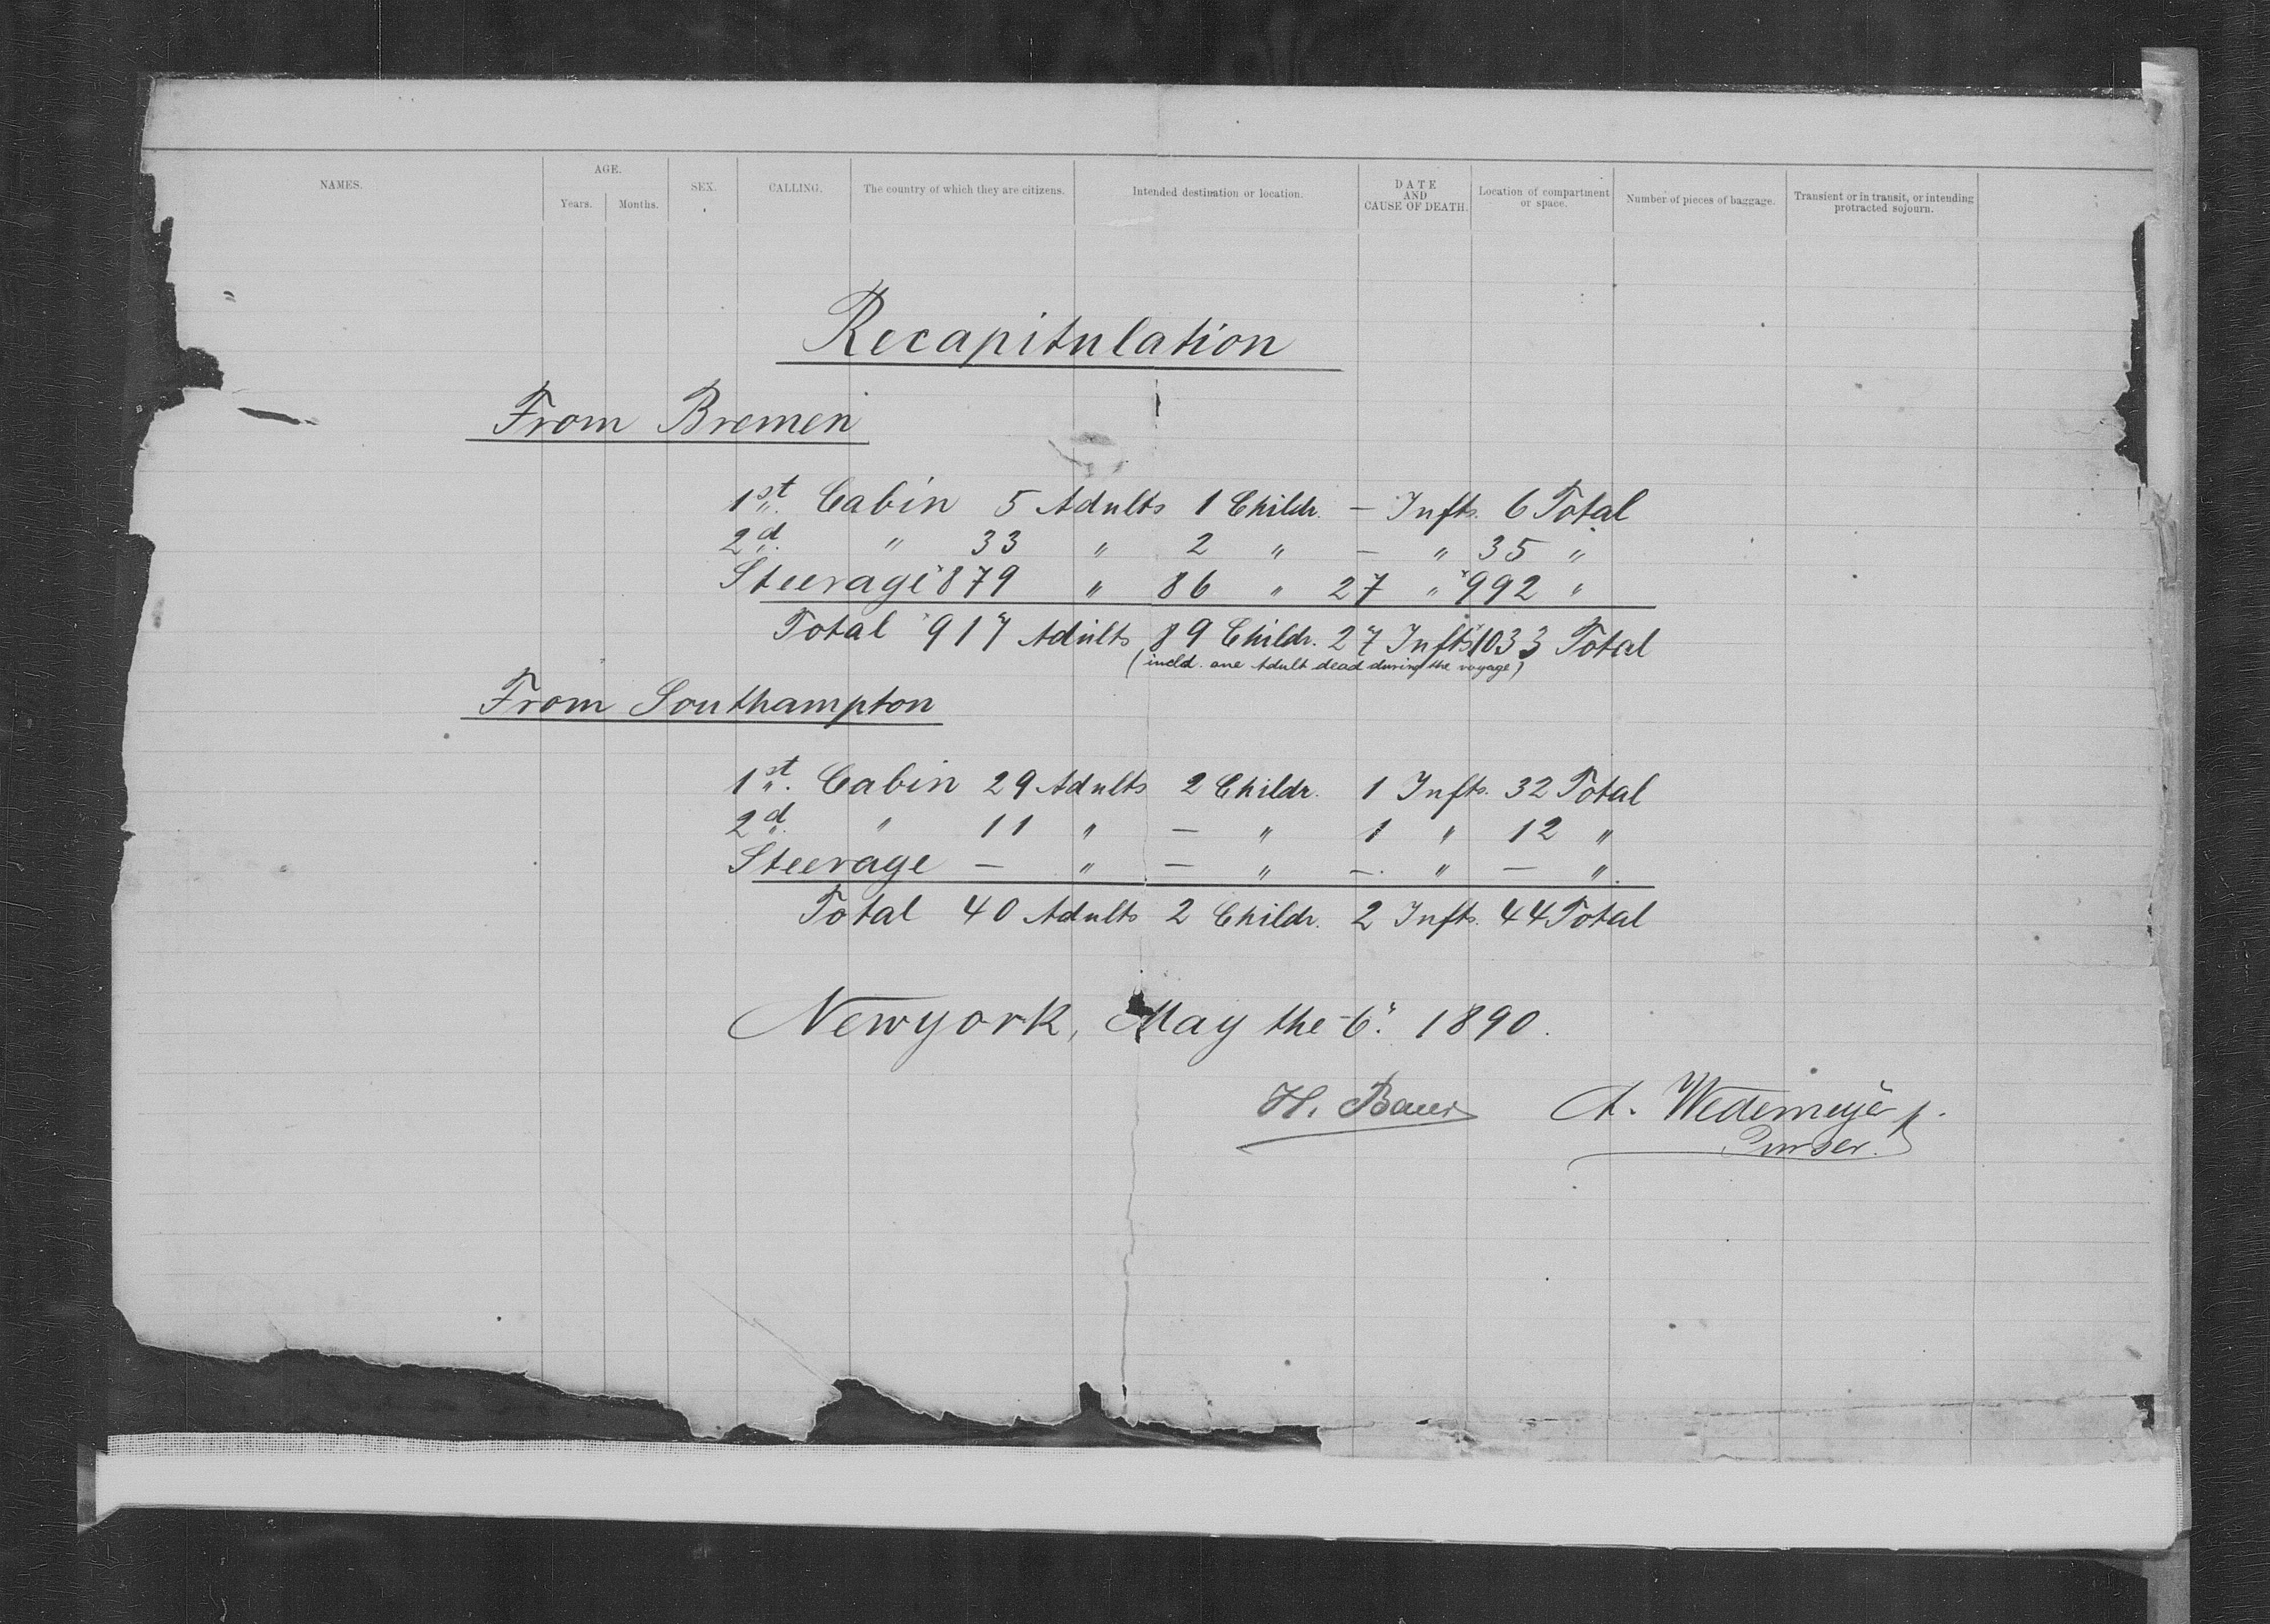 NAMES. AGE. Years. Months. SEX. CALLING. The country of which they are citizens. Intended destination or location. DATE AND CAUSE OF DEATH. Location of compartment or space. Number of pieces of baggage. Transient or in transit, or intending protracted sojourn.
Recapitulation
From Bremen
1st. Cabin 5 Adults 1 Childr. — Infts. 6 Total
2d. " 33 " 2 " — " 35 "
Steerage 879 " 86 " 27 " 992 "
Total 917 Adults 89 Childr. 27 Infts 1033 Total
(incld. one Adult dead during the voyage)
From Southampton
1st. Cabin 29 Adults 2 Childr. 1 Infts. 32 Total
2d. " 11 " — " 1 " 12 "
Steerage — " — " — " — "
Total 40 Adults 2 Childr. 2 Infts. 44 Total
Newyork, May the 6. 1890.
H. Bauer A. Wedemeyer
Purser.